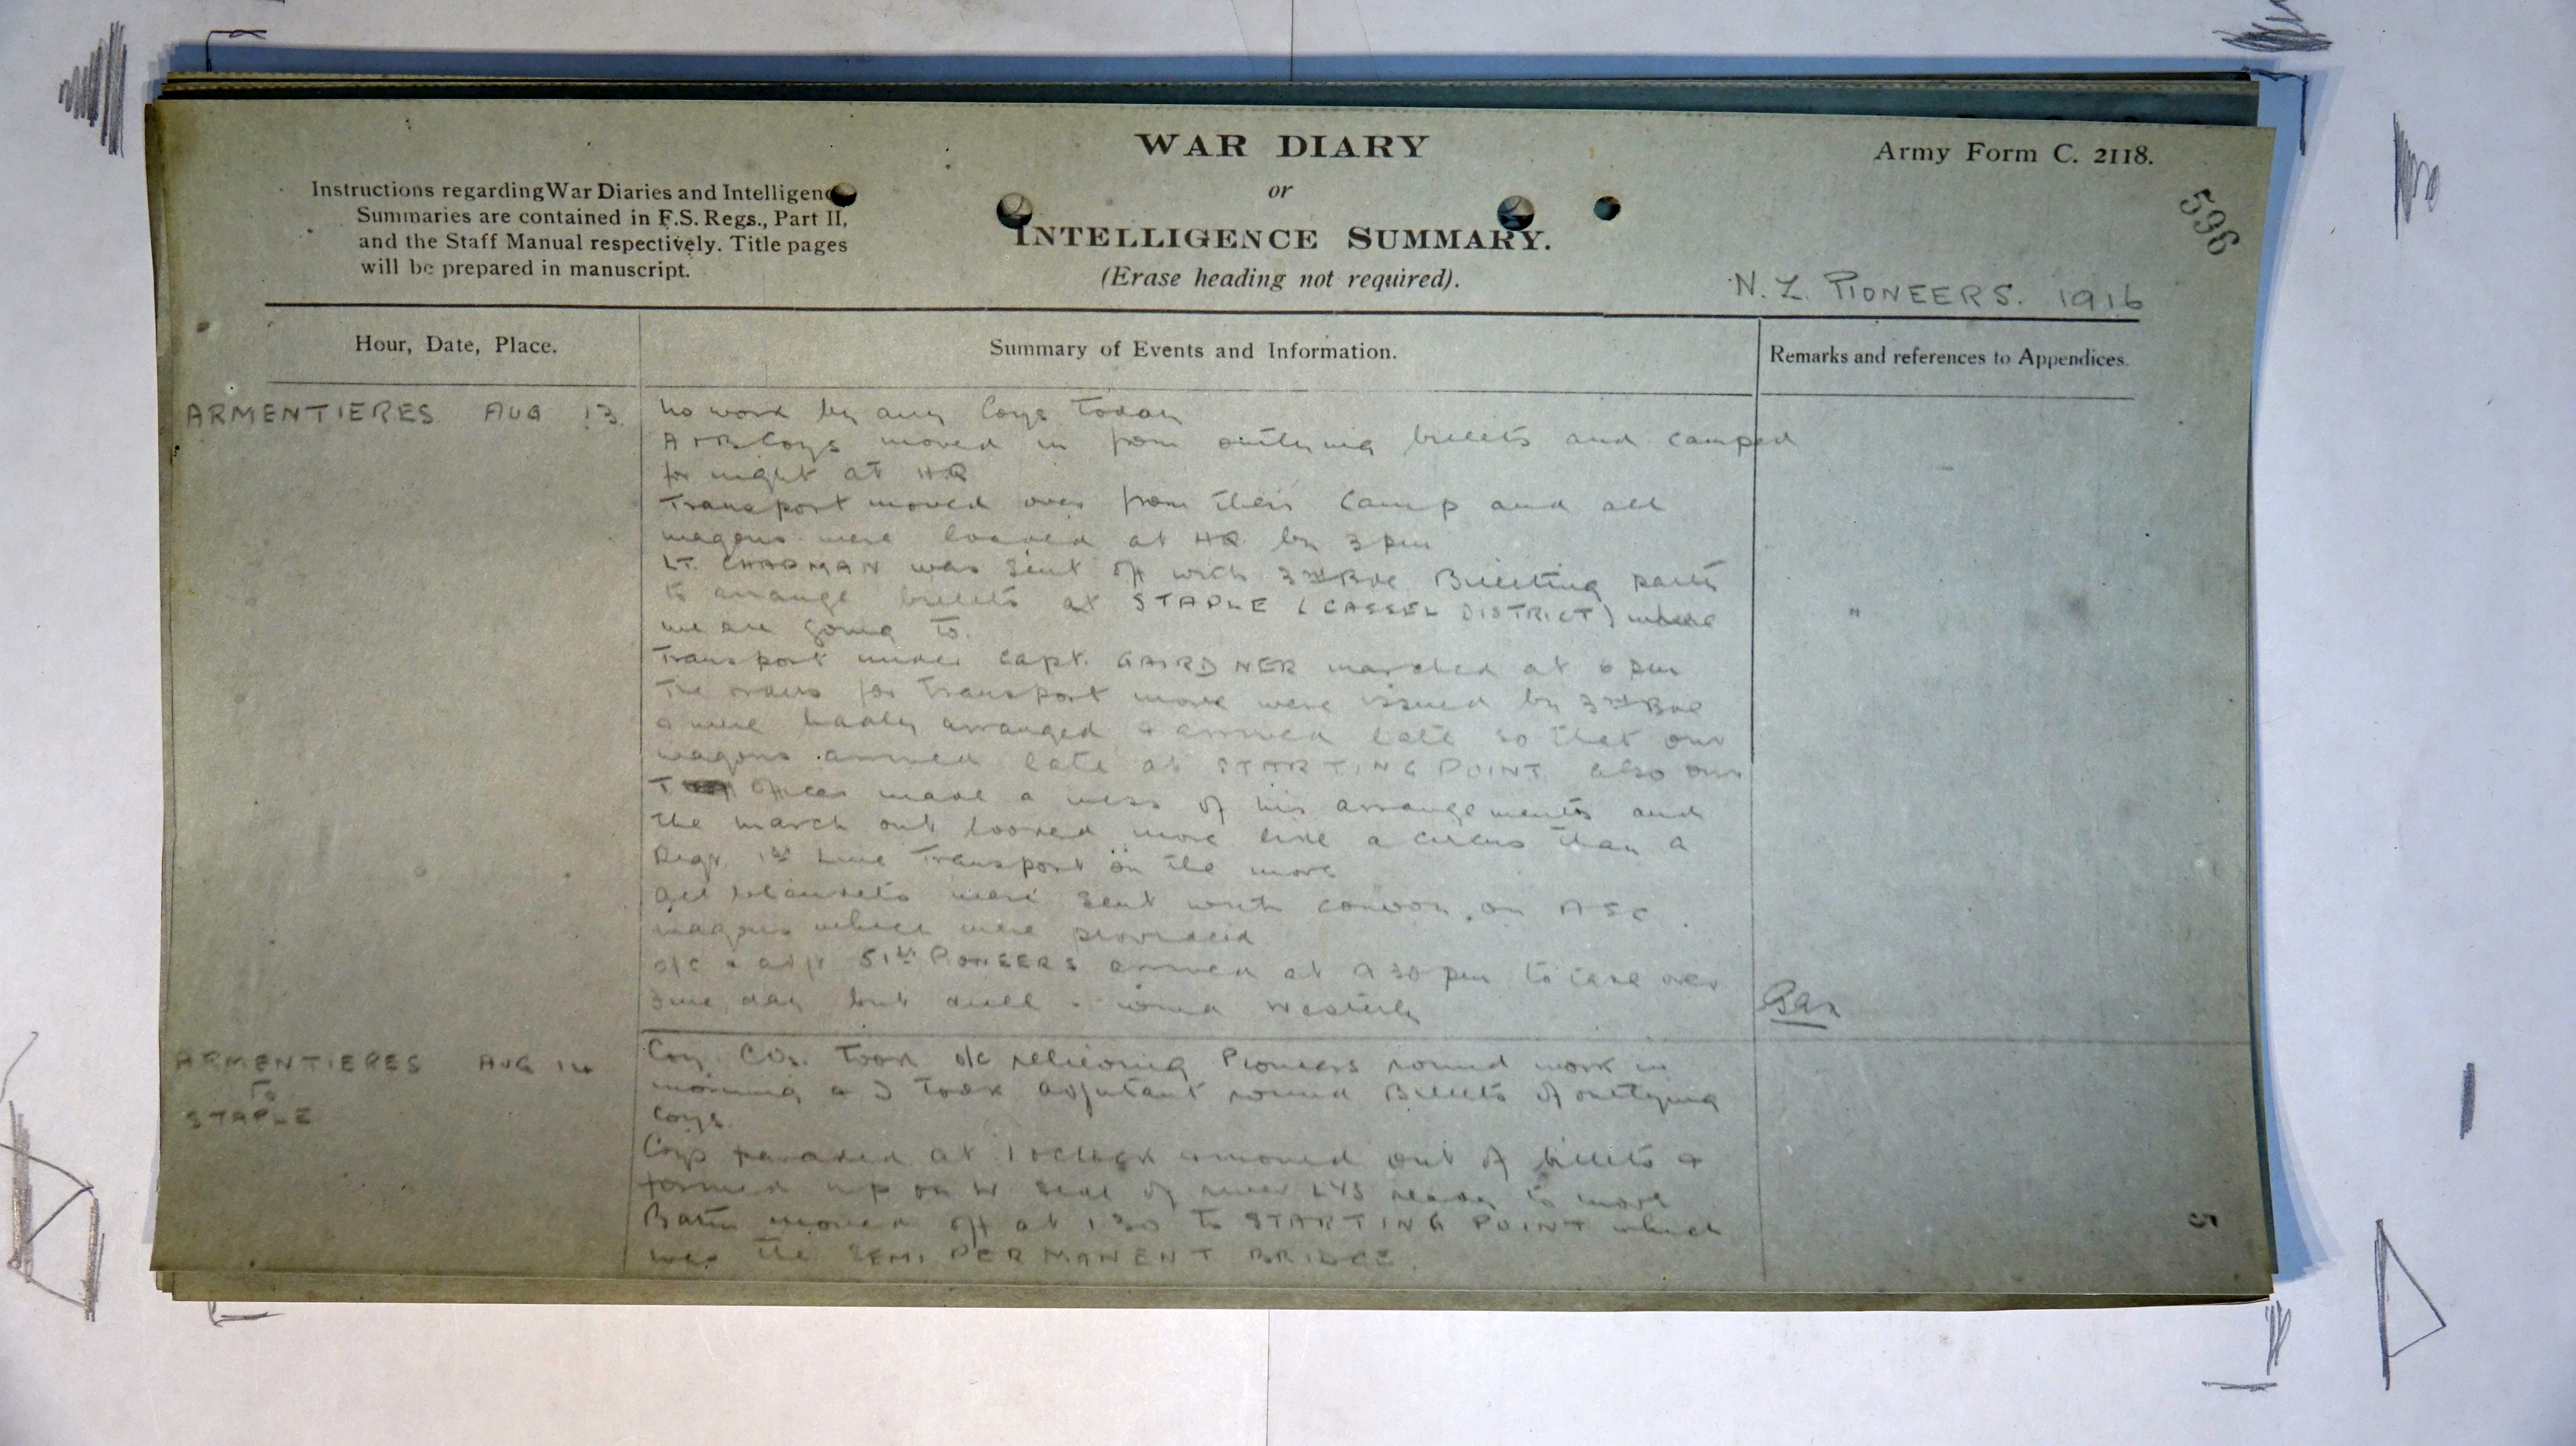 WAR DIARY
or
INTELLIGENCE SUMMARY.
(Erase heading not required).
Army Form C. 2118.
Instructions regarding War Diaries and Intelligence
Summaries are contained in F.S. Regs., Part II,
and the Staff Manual respectively. Title pages
will be prepared in manuscript.
596
N.Z. PIONEERS. 1916
Hour, Date, Place.
Summary of Events and Information.
Remarks and references to Appendices.
ARMENTIERES AUG 13.
No work by any Coys Today
A & B Coys moved in from outlying billets and camped
for night at HQ
Transport moved over from their camp and all
wagons were loaded at HQ by 3 pm
LT. CHAPMAN was sent off with 3rd Bde Billeting party
to arrange billets at STAPLE (CASSEL DISTRICT) where
we are going to.
Transport under Capt. GAIRDNER marched at 6 pm
The orders for Transport move were issued by 3rd Bde
& were badly arranged & arrived late so that our
wagons arrived late at STARTING POINT also our
T officer made a mess of his arrangements and
the march out looked more like a circus than a
Regt. 1st Line Transport on the move
All blankets were sent with convoy on ASC
wagons which were provided
O/C & adjt 51st PIONEERS arrived at 9 30 pm to take over
Fine day but dull - wind Westerly
ARMENTIERES AUG 14
TO
STAPLE
Coy. COs. took o/c relieving Pioneers round work in
morning & I took adjutant round Billets of outlying
Coys.
Coys paraded at 1 oclock & moved out of billets &
formed up on W side of river LYS ready to move
Battn moved off at 1.30 to STARTING POINT which
was the SEMI PERMANENT BRIDGE.
5